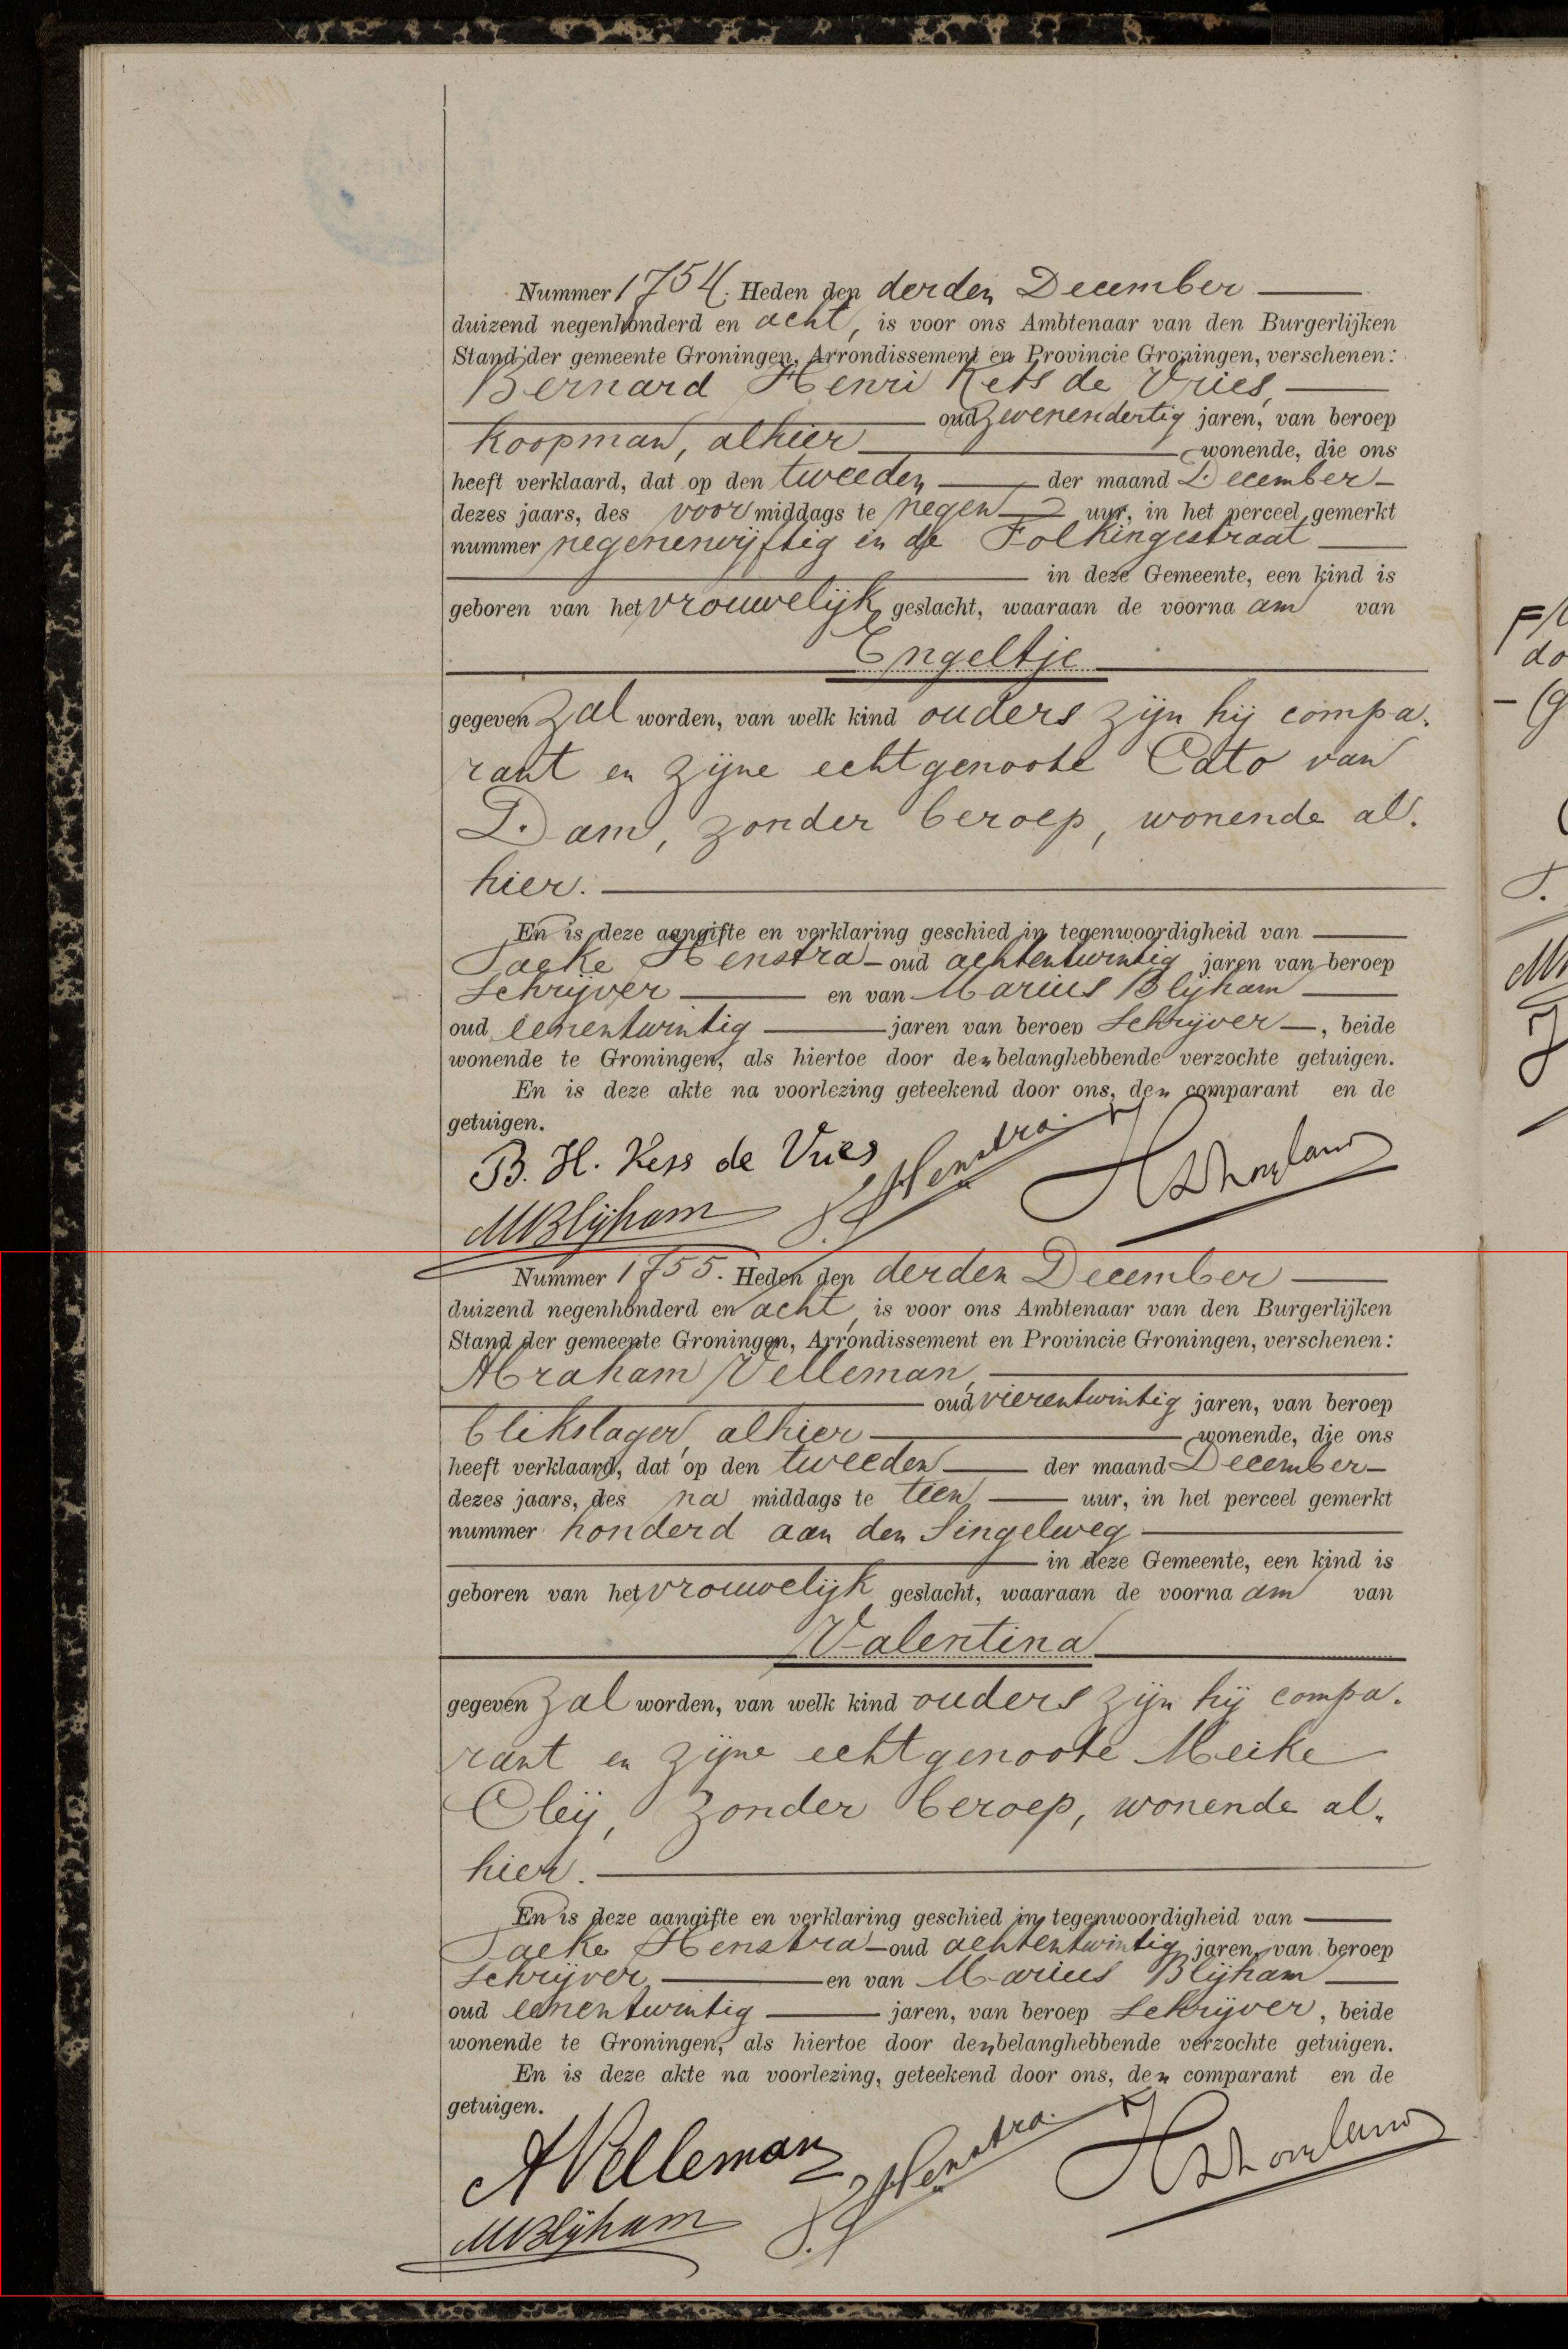 Nummer 1754. Heden den derden December
duizend negenhonderd en acht, is voor ons Ambtenaar van den Burgerlijken
Stand der gemeente Groningen, Arrondissement en Provincie Groningen, verschenen:
Bernard Henri Kets de Vries,
oud zevenendertig jaren, van beroep
koopman, alhier wonende, die ons
heeft verklaard, dat op den tweeden der maand December
dezes jaars, des voormiddags te negen uur, in het perceel gemerkt
nummer negenenvijftig in de Folkingestraat
in deze Gemeente, een kind is
geboren van het vrouwelijk geslacht, waaraan de voornaam van
Engeltje
gegeven zal worden, van welk kind ouders zijn hij compa-
rant en zijne echtgenoote Cato van
Dam, zonder beroep, wonende al-
hier.
En is deze aangifte en verklaring geschied in tegenwoordigheid van
Taeke Henstra oud achtentwintig jaren van beroep
schrijver en van Marius Blijham
oud eenentwintig jaren van beroep schrijver, beide
wonende te Groningen, als hiertoe door den belanghebbende verzochte getuigen.
En is deze akte na voorlezing geteekend door ons, den comparant en de
getuigen.
B. H. Kets de Vries Henstra
MBlijham
Nummer 1755. Heden den derden December
duizend negenhonderd en acht, is voor ons Ambtenaar van den Burgerlijken
Stand der gemeente Groningen, Arrondissement en Provincie Groningen, verschenen:
Abraham Velleman,
oud vierentwintig jaren, van beroep
blikslager, alhier wonende, die ons
heeft verklaard, dat op den tweeden der maand December
dezes jaars, des na middags te tien uur, in het perceel gemerkt
nummer honderd aan den Singelweg
in deze Gemeente, een kind is
geboren van het vrouwelijk geslacht, waaraan de voornaam van
Valentina
gegeven zal worden, van welk kind ouders zijn hij compa-
rant en zijne echtgenoote Meike
Cleij, zonder beroep, wonende al-
hier.
En is deze aangifte en verklaring geschied in tegenwoordigheid van
Taeke Henstra oud achtentwintig jaren, van beroep
schrijver en van Marius Blijham
oud eenentwintig jaren, van beroep schrijver, beide
wonende te Groningen, als hiertoe door den belanghebbende verzochte getuigen.
En is deze akte na voorlezing, geteekend door ons, den comparant en de
getuigen.
AVelleman Henstra
MBlijham